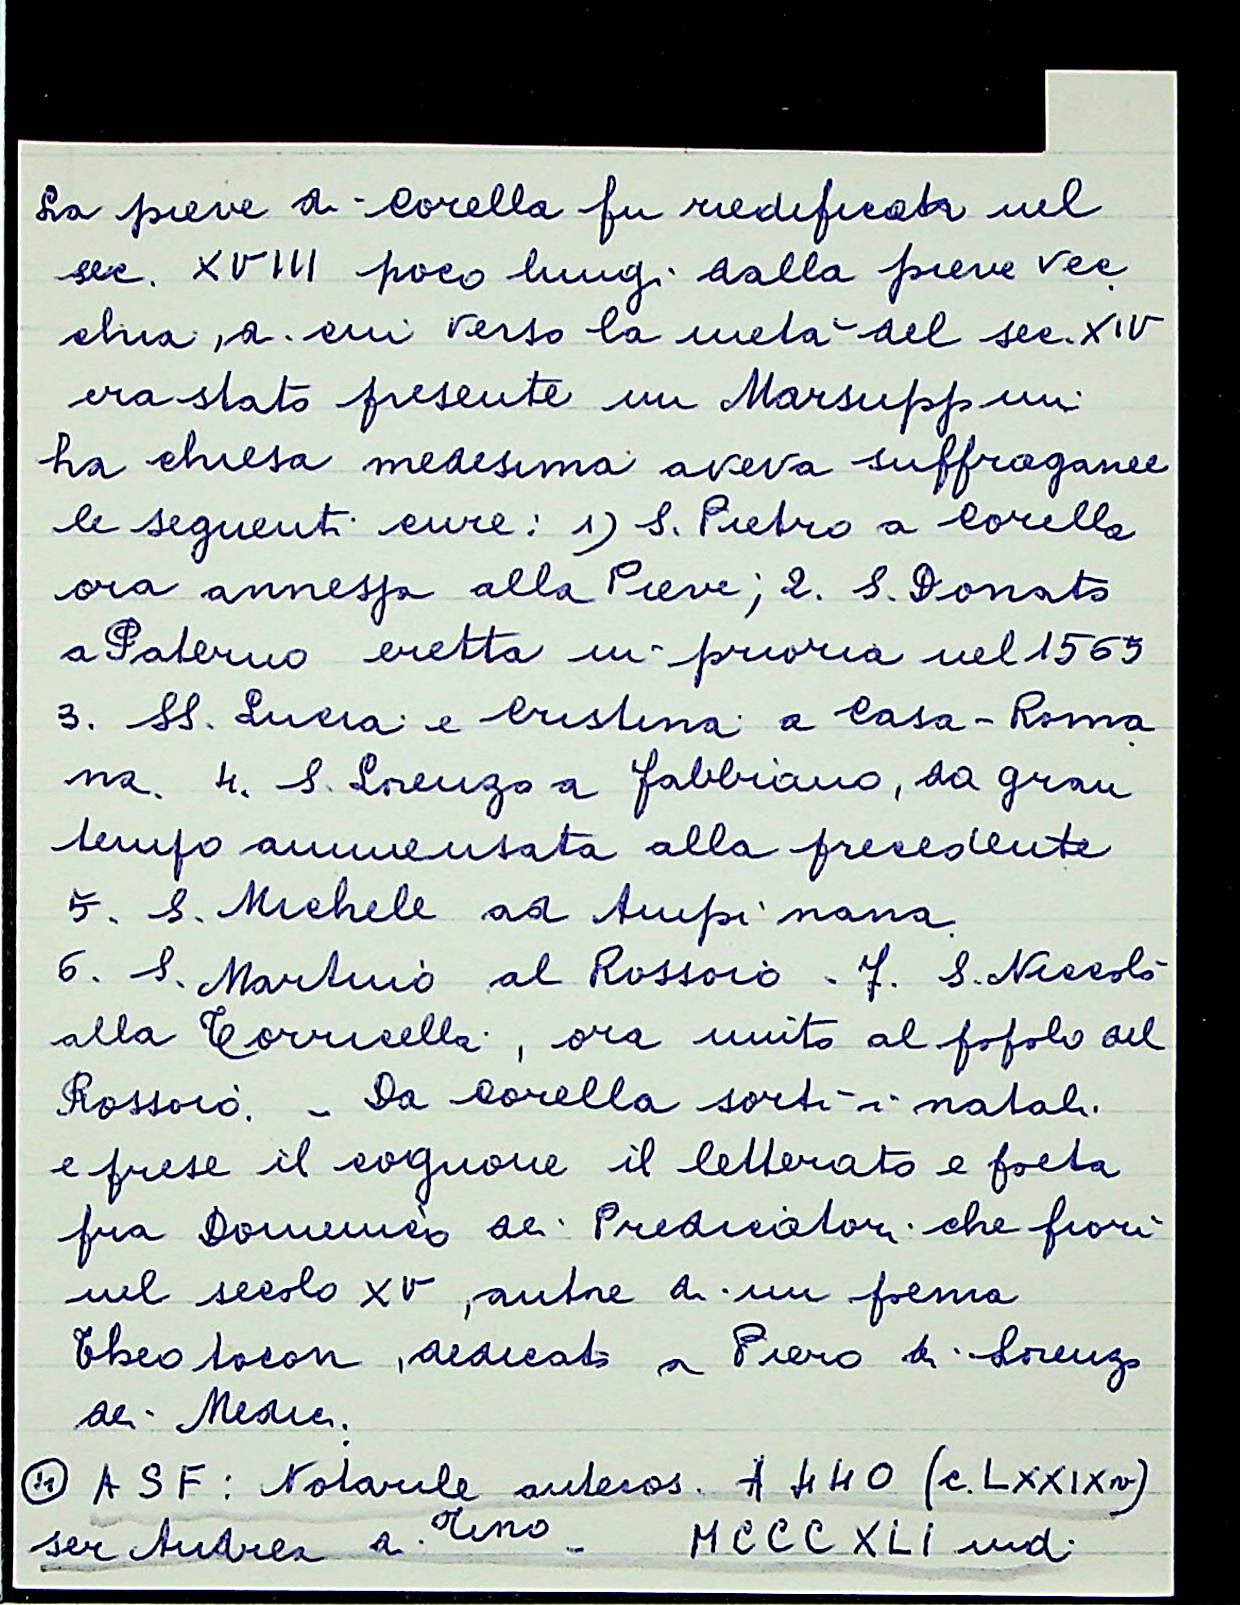 La pieve di Corella fu riedificata nel
sec. XVIII poco lungi dalla pieve vec
chia, di cui verso la metà del sec. XIV
era stato presente un Marsuppini
La chiesa medesima aveva suffraganee
le seguenti cure: 1) S. Pietro a Corella
ora annessa alla Pieve; 2. S. Donato
a Paterno eretta in prioria nel 1565
3. SS. Lucia e Cristina a Casa-Roma
na. 4. S. Lorenzo a Fabbiano, da gran
tempo ammensata alla precedente
5. S. Michele ad Ampinana.
6. S. Martino al Rossoio. 7. S. Niccolò
alla Torricella, ora unito al popolo del
Rossoio. - Da Corella sortì i natali
e prese il cognome il letterato e poeta
fra Domenico dei Predicatori che fiorì
nel secolo XV, autore di un poema
Theotocon, dedicato a Piero di Lorenzo
dei Medici.
ASF: Notarile antecos. A 440 (c. LXXIXv)
ser Andrea di Tino - MCCCXLI ind.